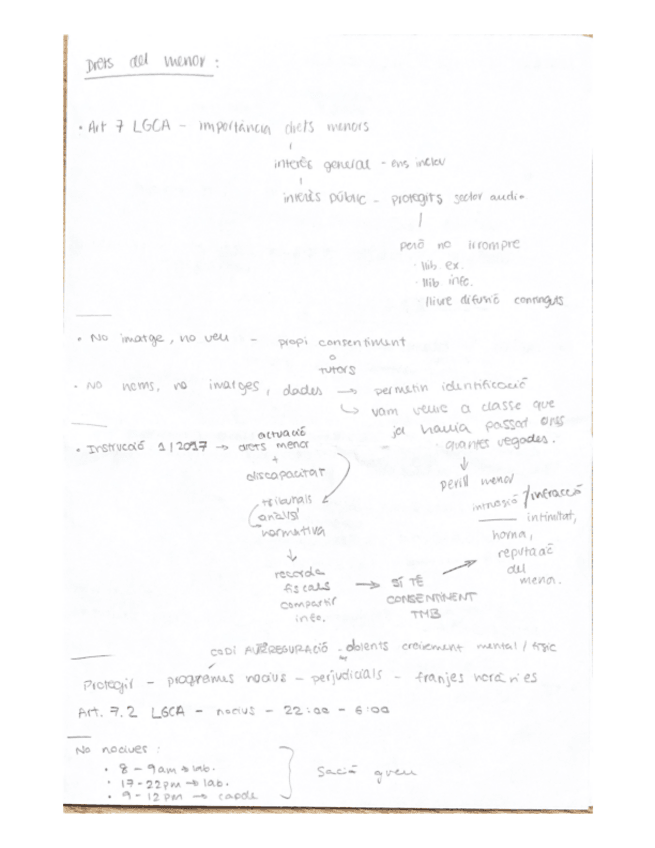 Drets del menor :
• Art 7 LGCA - importància drets menors
interès general - ens inclou
interès públic - protegits sector audio
però no irrompre
· llib ex.
· llib info.
· lliure difusió continguts
• No imatge, no veu - propi consentiment
o
TUTORS
• No noms, no imatges, dades → permetin identificació
↳ vam veure a classe que
ja havia passat
quantes vegades.
• Instrucció 1/2017 → actuació
drets menor
+
discapacitat
tribunals
anàlisi
normativa
↓
recorda
fiscals
compartir
info.
→ SÍ TÉ
CONSENTIMENT
TMB
↓
perill menor
intimitat,
honra,
reputació
del
menor.
CODI AUTOREGULACIÓ - dolents creixement mental / físic
Protegir - programes nocius - perjudicials - franjes horàries
Art. 7.2 LGCA - nocius - 22:00 - 6:00
No nocives :
• 8 - 9am → lab.
• 17 - 22pm → lab.
• 9 - 12pm → capde
Sació greu